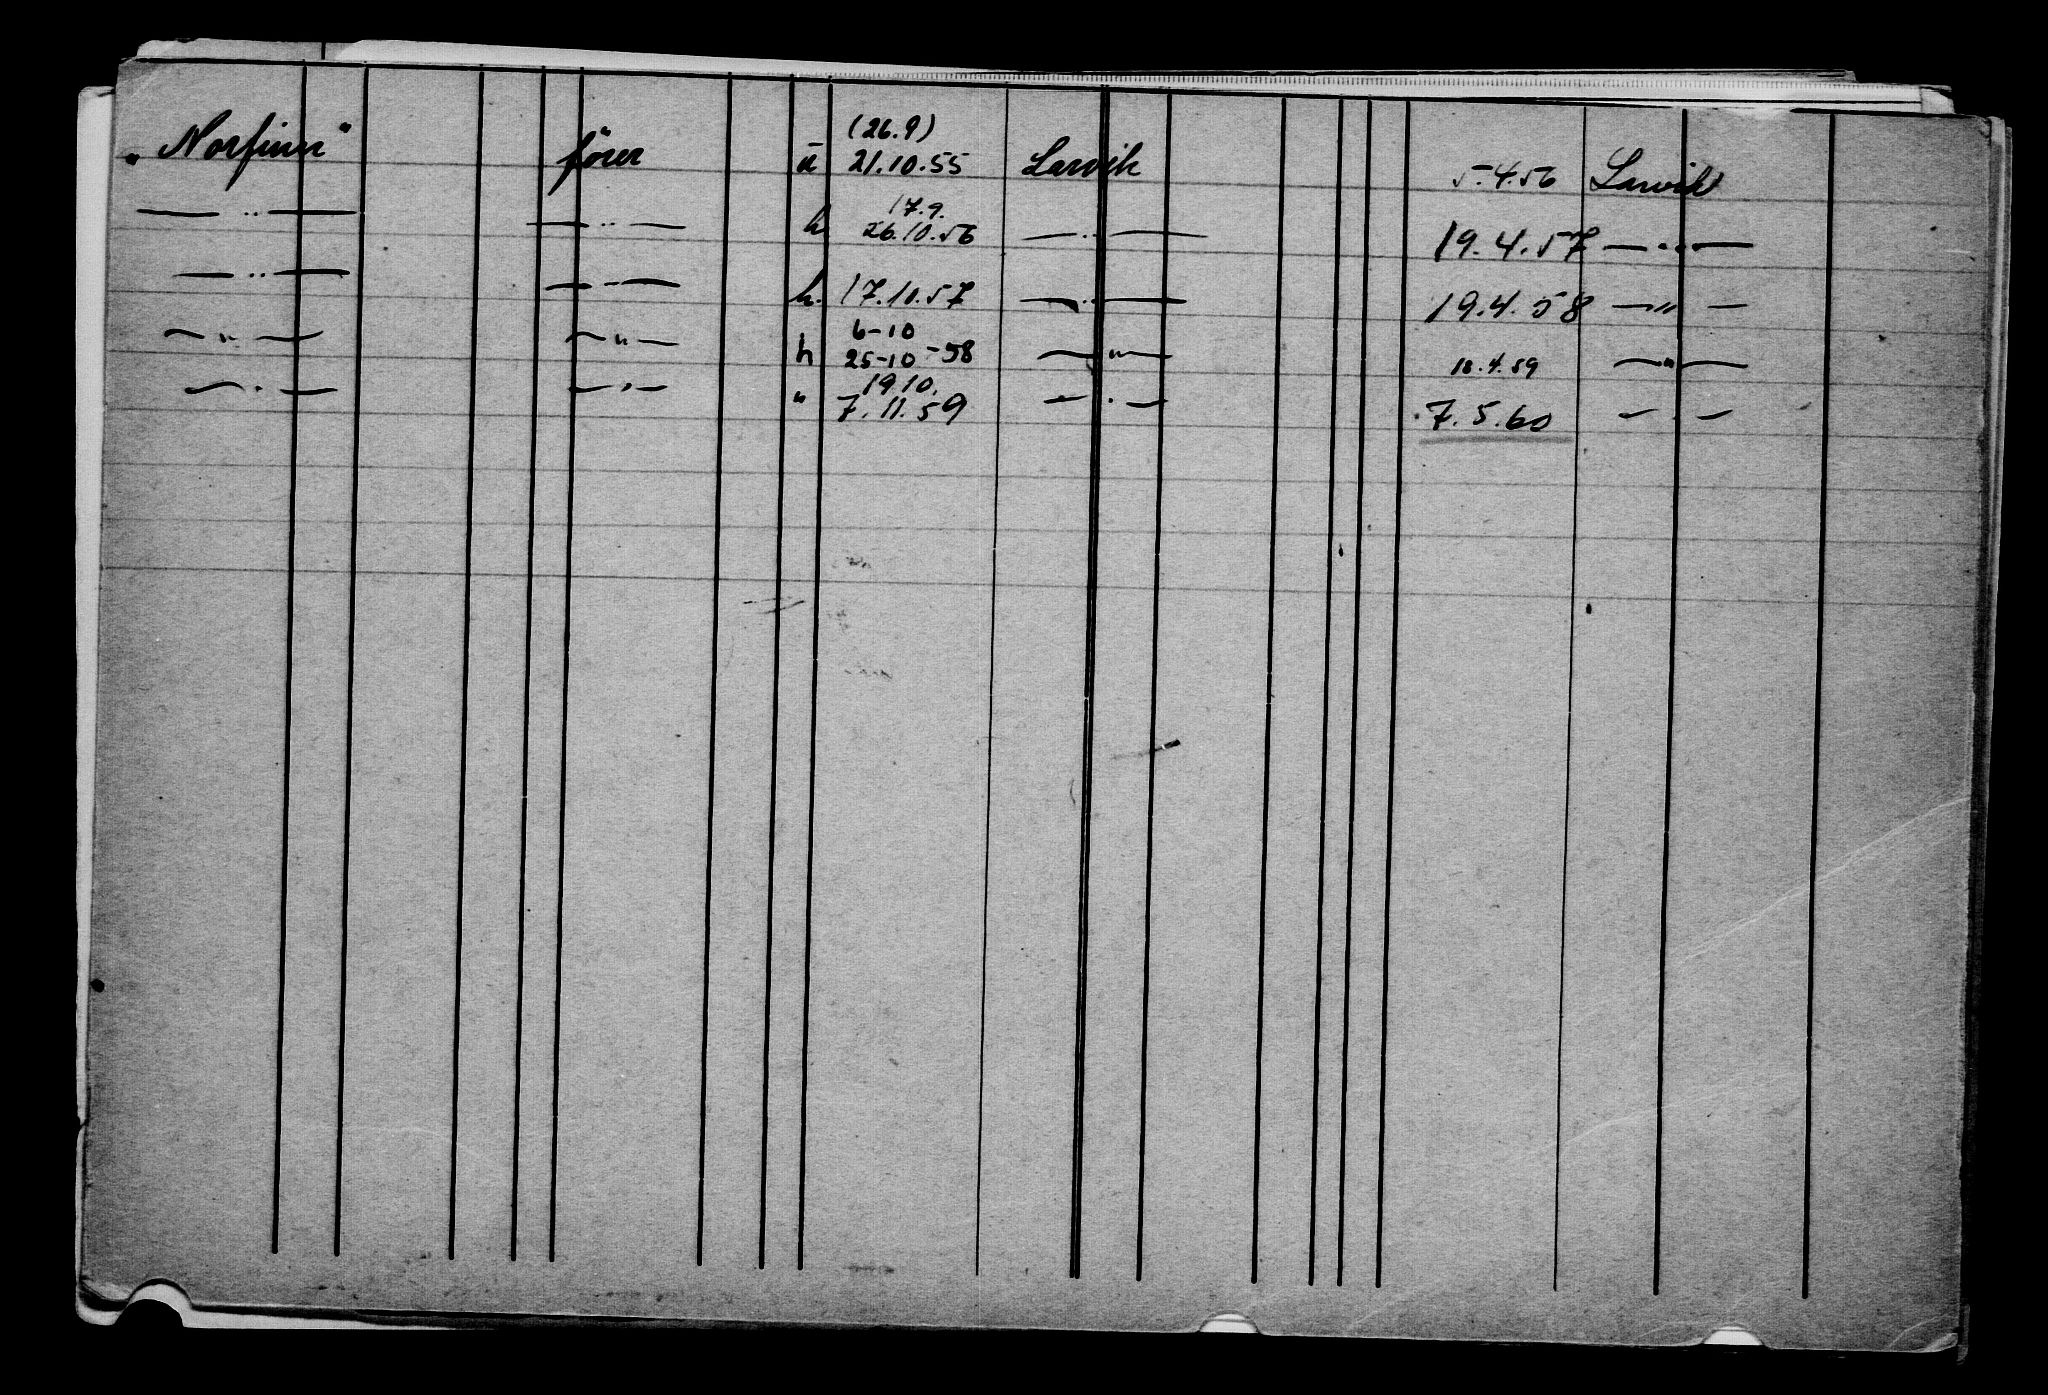 (26.9)
"Norfinn" fører u 21.10.55 Larvik 5.4.56 Larvik
17.9.
— .. — — .. — h 26.10.56 — .. — 19.4.57 — .. —
— .. — — .. — h. 17.10.57 — .. — 19.4.58 — " —
6-10
— " — — " — h 25-10-58 — " — 18.4.59 — " —
19.10.
— " — — " — " 7.11.59 — " — 7.5.60 — " —